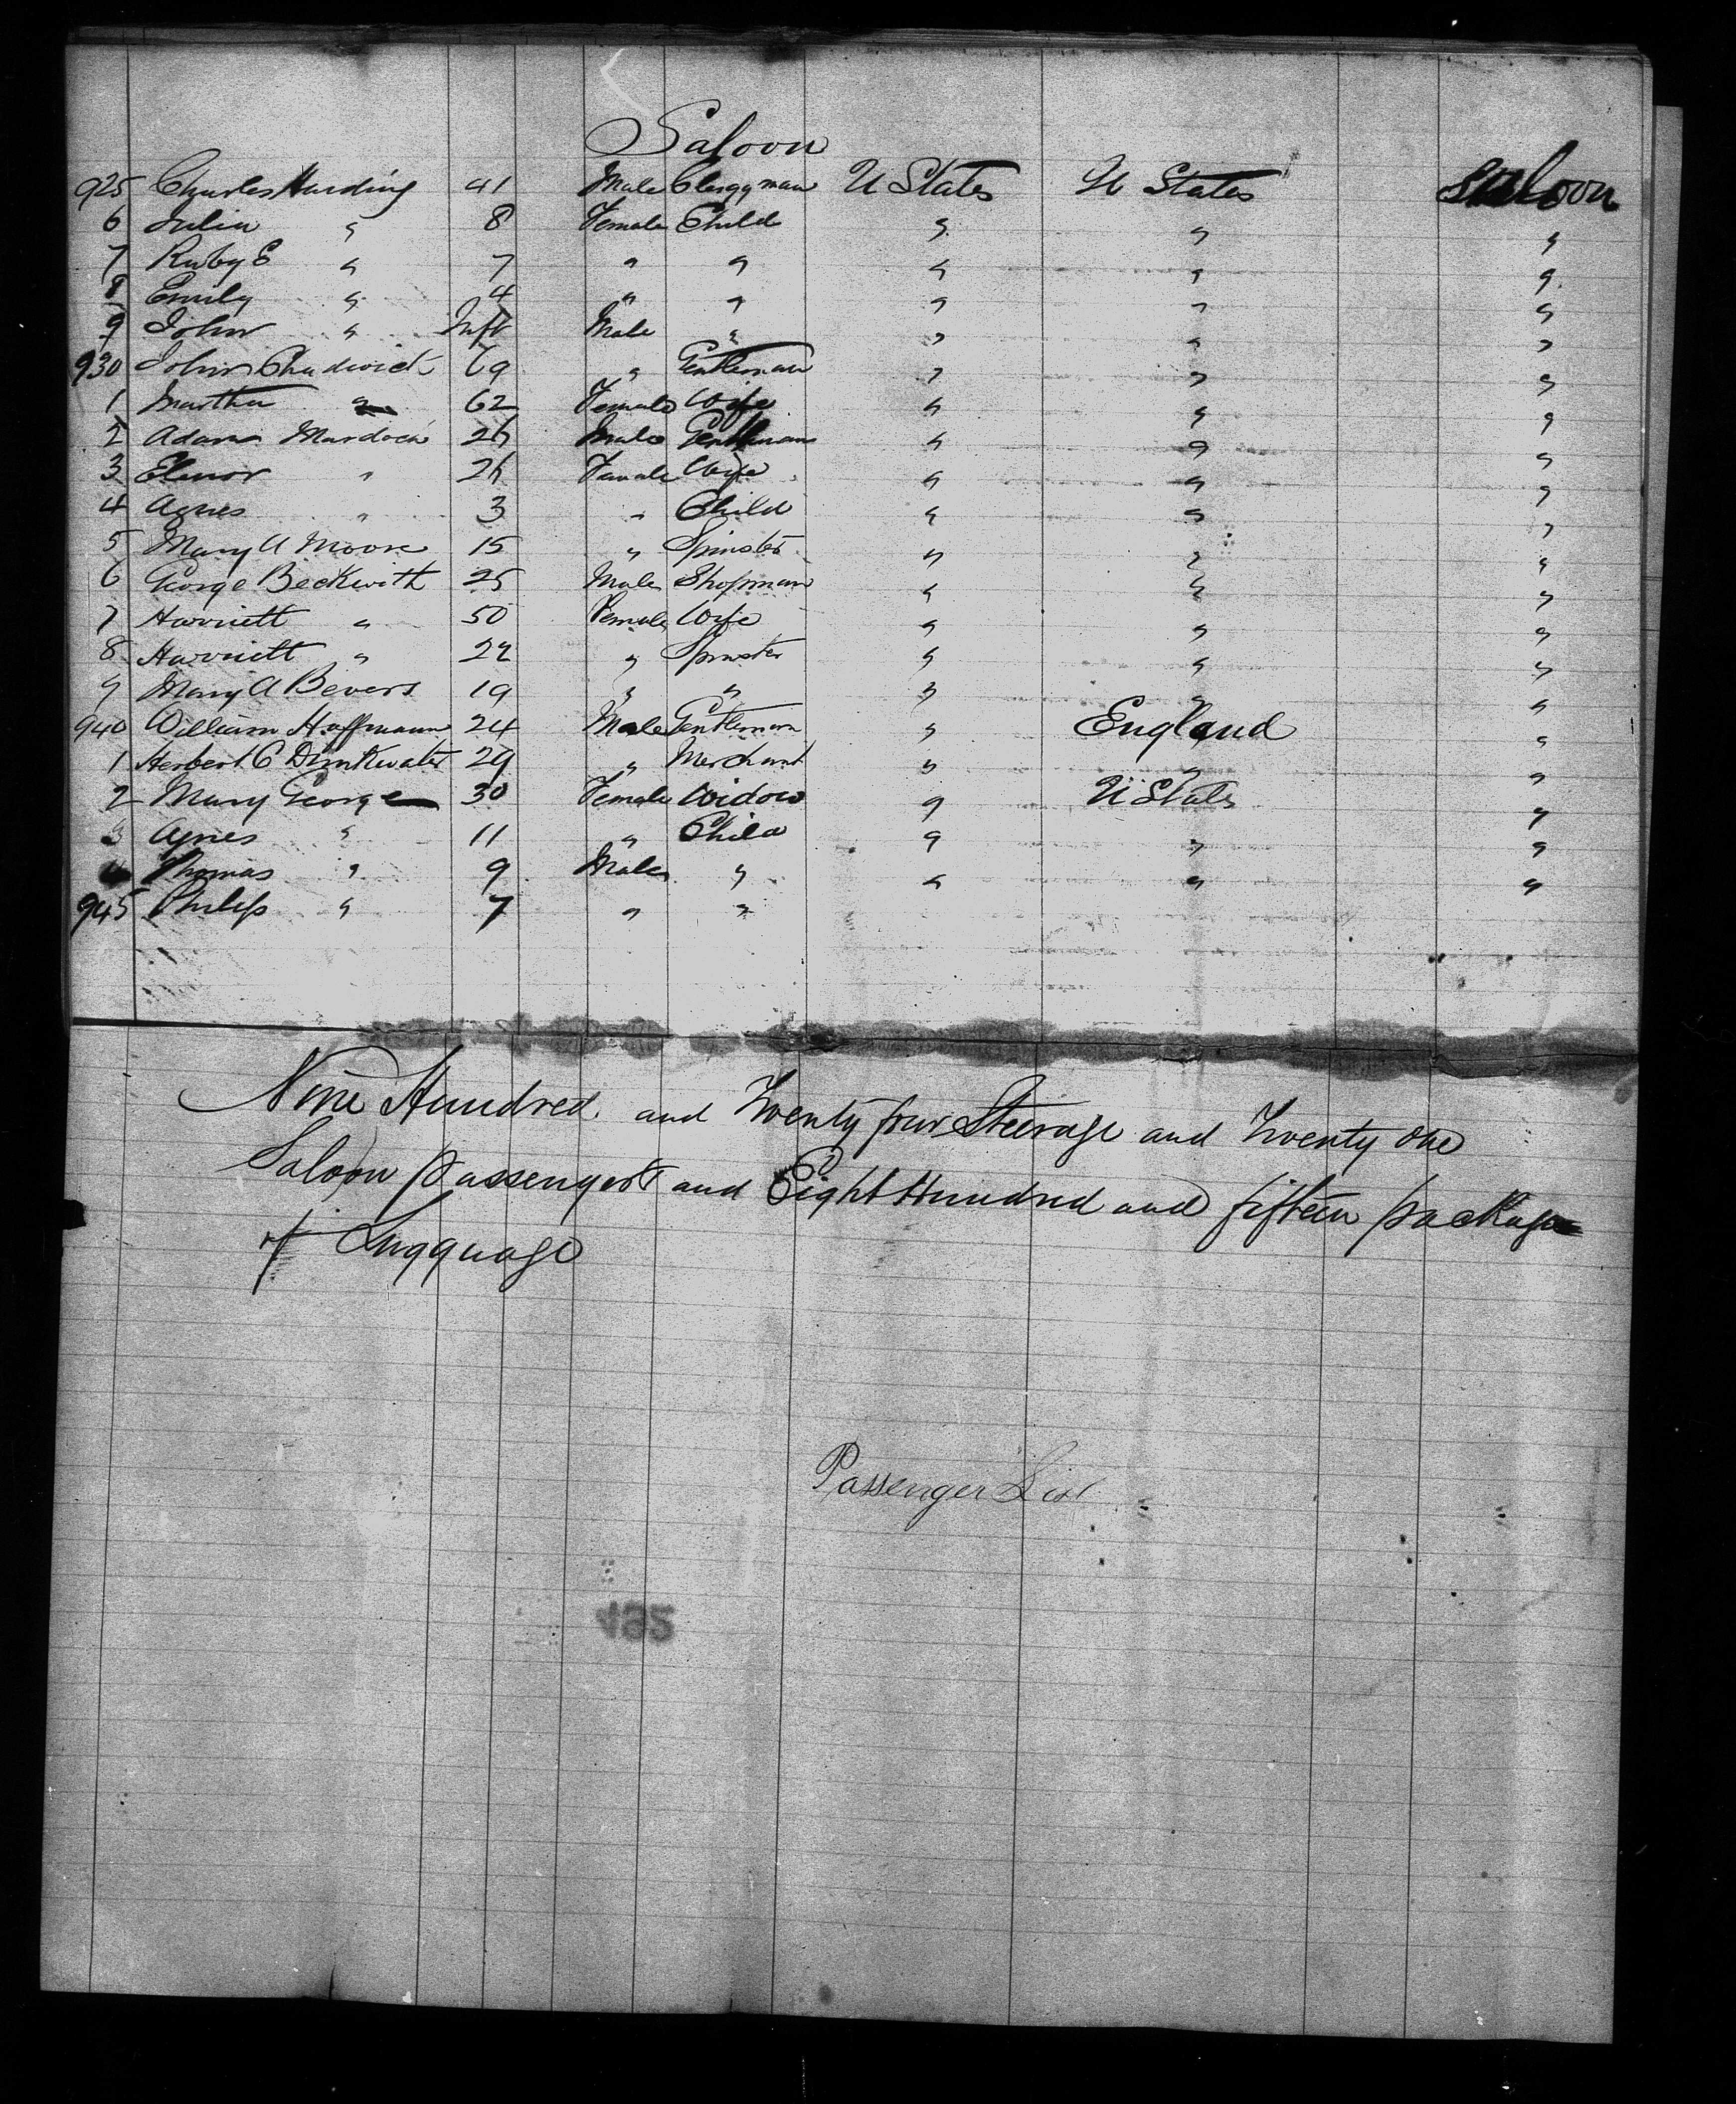 Saloon
925 Charles Harding 41 Male Clergyman U States U States Saloon
6 Julia " 8 Female Child " " "
7 Ruby E " 7 " " " " "
8 Emily " 4 " " " " "
9 John " Inft Male " " " "
930 John Chadwick 69 " Gentleman " " "
1 Martha " 62 Female Wife " " "
2 Adam Murdock 26 Male Gentleman " " "
3 Elenor " 26 Female Wife " " "
4 Agnes " 3 " Child " " "
5 Mary A Moore 15 " Spinster " " "
6 George Beckwith 25 Male Shopman " " "
7 Harriett " 50 Female Wife " " "
8 Harriett " 22 " Spinster " " "
9 Mary A Bevers 19 " " " " "
940 William Hoffmann 24 Male Gentleman " England "
1 Herbert C Drinkwater 29 " Merchant " " "
2 Mary George 30 Female Widow " U States "
3 Agnes " 11 " Child " " "
4 Thomas " 9 Male " " " "
945 Philip " 7 " "
Nine Hundred and Twenty four Steerage and Twenty one
Saloon passengers and Eight Hundred and fifteen package
of Lugguage
Passenger List